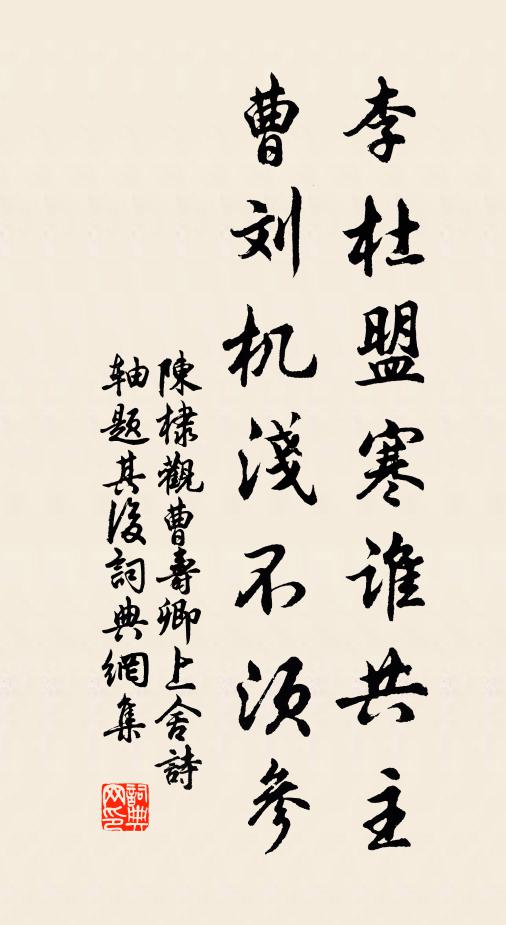 李杜盟寒谁共主
曹刘机淺不须參
陳棣觀曹壽卿上舍詩
軸题其後詞典網集
詞典网印